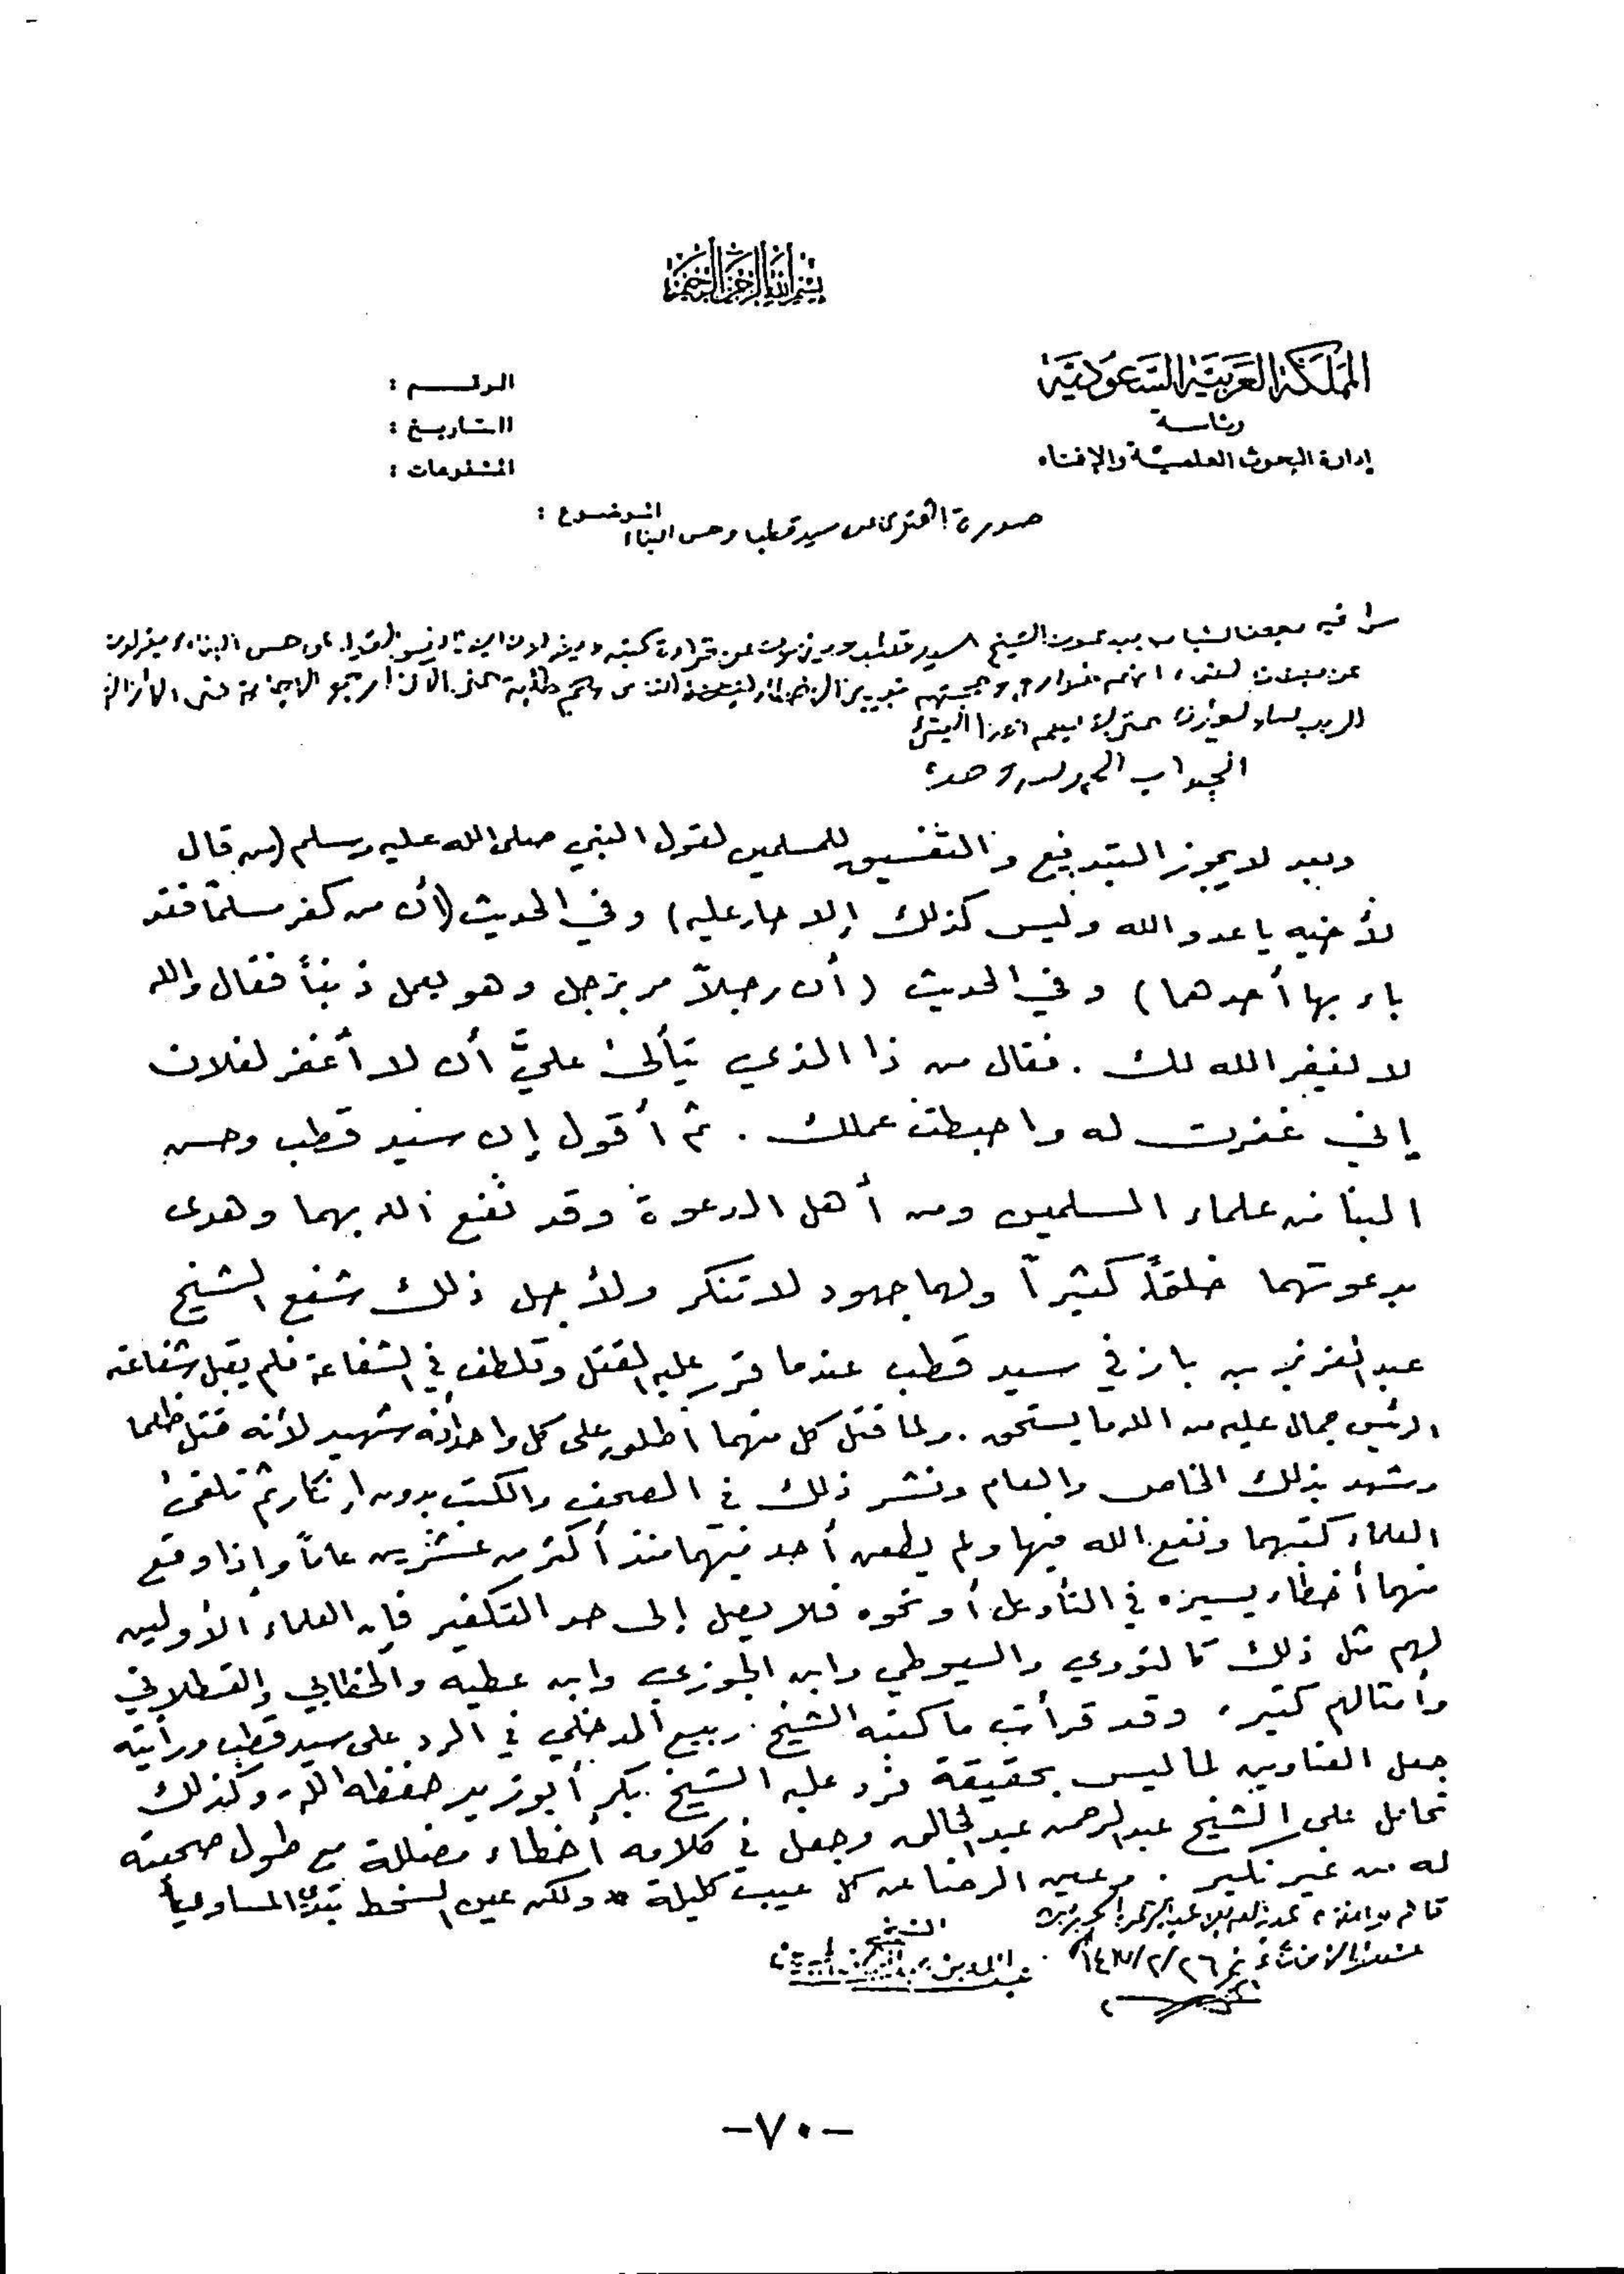 بسم الله الرحمن الرحيم
المملكة العربية السعودية
رئاسة
إدارة البحوث العلمية والإفتاء
الرقم :
التاريخ :
المشفوعات :
الموضوع :
صورة الفتوى عن سيد قطب وحسن البنا
الجواب الحمد لله وحده
وبعد لا يجوز التبديع والتفسيق للمسلمين لقول النبي صلى الله عليه وسلم (من قال
لأخيه يا عدو الله وليس كذلك إلا حار عليه) وفي الحديث (أن من كفر مسلماً فقد
باء بها أحدهما) وفي الحديث (أن رجلاً مر برجل وهو يعمل ذنباً فقال والله
لا يغفر الله لك . فقال من ذا الذي يتألى عليَّ أن لا أغفر لفلان
إني غفرت له وأحبطت عملك . ثم أقول إن سيد قطب وحسن
البنا من علماء المسلمين ومن أهل الدعوة وقد نفع الله بهما وهدى
بدعوتهما خلقاً كثيراً ولهما جهود لا تنكر ولأجل ذلك شفع الشيخ
عبد العزيز بن باز في سيد قطب عندما قرر عليه القتل وتلطف في الشفاعة فلم يقبل شفاعته
الرئيس جمال عليه من الله ما يستحق . ولما قتل كل منهما أطلق على كل واحد أنه شهيد لأنه قتل ظلما
وشهد بذلك الخاص والعام ونشر ذلك في الصحف والكتب بدون إنكار ثم تلقى
العلماء كتبهما ونفع الله فيها ولم يطعن أحد فيهما منذ أكثر من عشرين عاماً وإذا وقع
منهما أخطاء يسيره في التأويل أو نحوه فلا يصل إلى حد التكفير فإن العلماء الأولين
لهم مثل ذلك كالنووي والسيوطي وابن الجوزي وابن عطيه والخطابي والقسطلاني
وأمثالهم كثير، وقد قرأت ما كتبه الشيخ ربيع المدخلي في الرد على سيد قطب ورأيته
جعل العناوين لما ليس بحقيقة فرد عليه الشيخ بكر أبو زيد حفظه الله، وكذلك
تحامل على الشيخ عبد الرحمن عبد الخالق وجعل في كلامه أخطاء مضللة مع طول صحبته
له من غير نكير . وعين الرضا عن كل عيب كليلة * ولكن عين السخط تبدي المساويا
الشيخ
-٧٠-